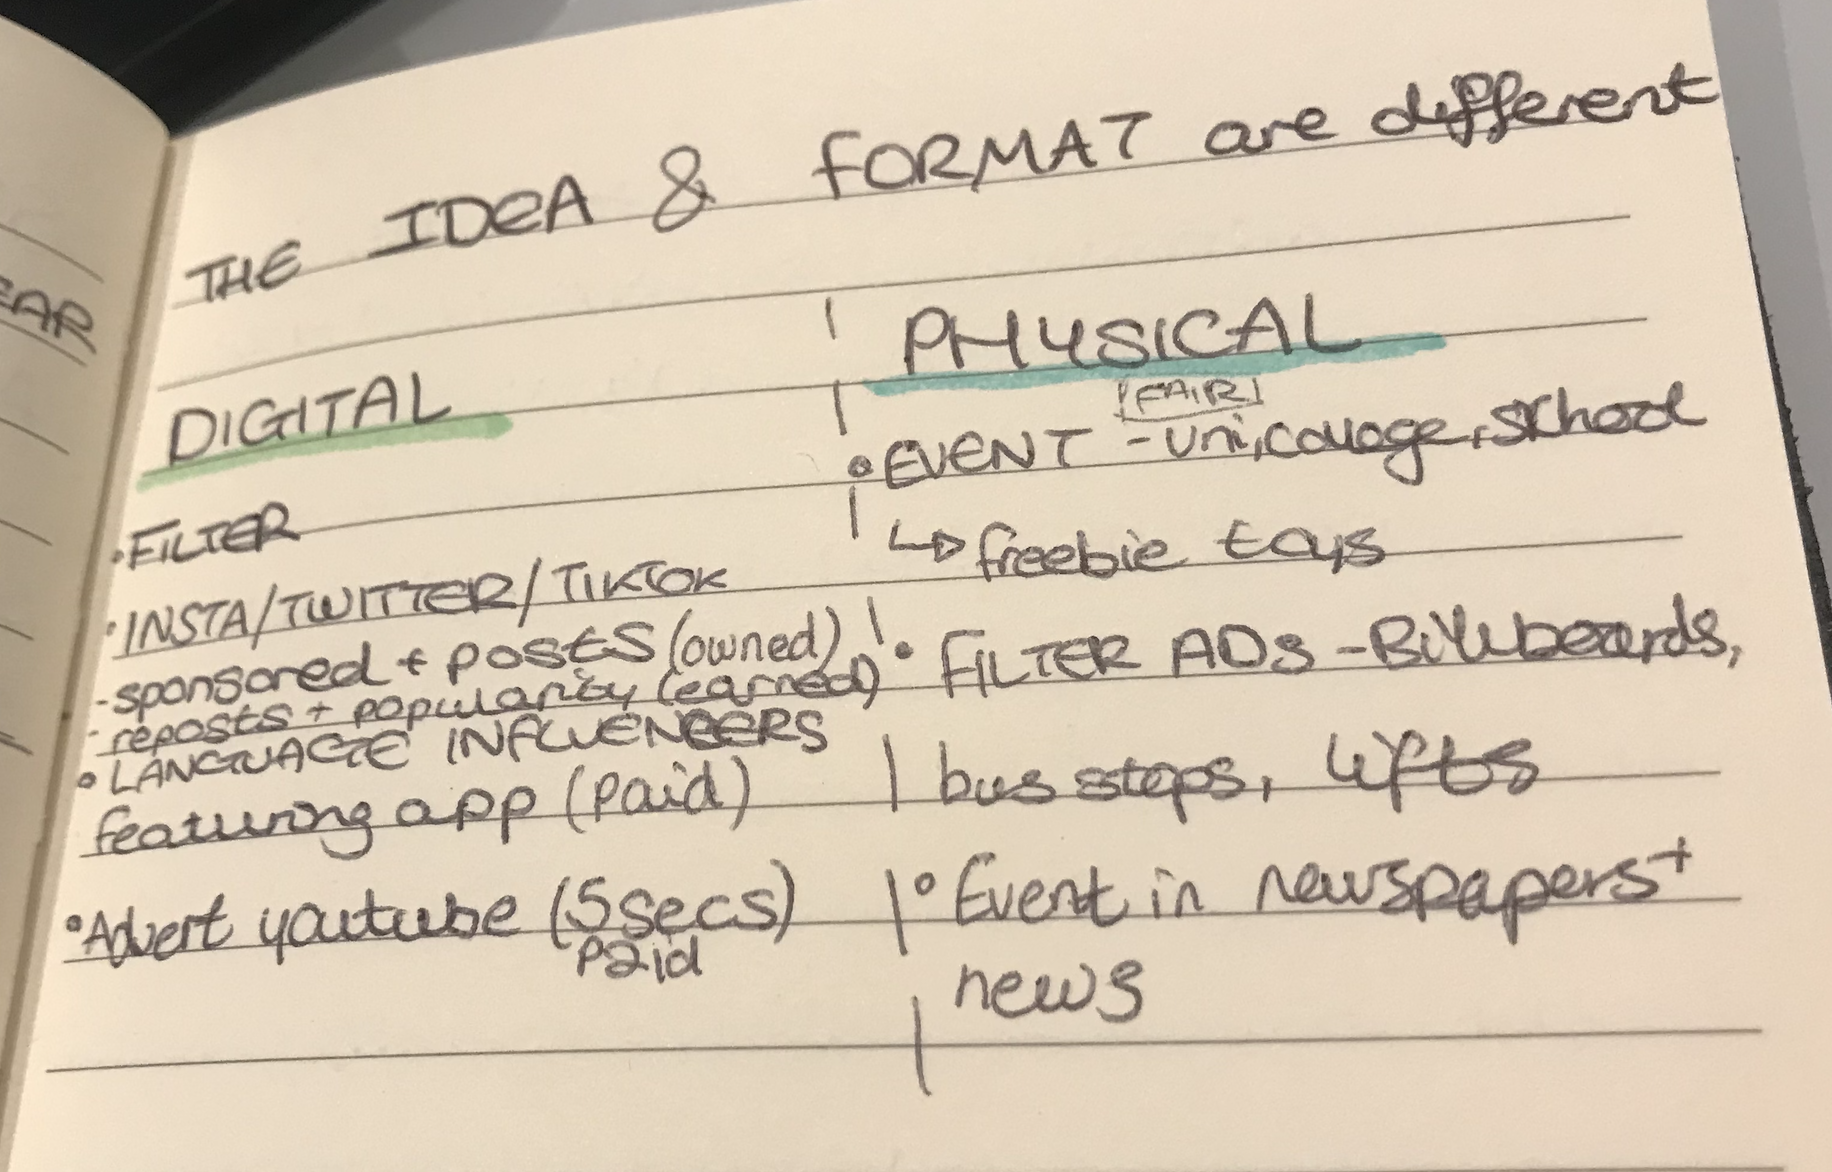 EAR
THE IDEA & FORMAT are different
DIGITAL
• FILTER
• INSTA/TWITTER/TIKTOK
- sponsored + posts (owned)
- reposts + popularity (earned)
• LANGUAGE INFLUENCERS
featuring app (paid)
• Advert youtube (5secs)
paid
PHYSICAL
[FAIR]
• EVENT - uni, collage, school
↳ freebie toys
• FILTER ADS - Billboards,
bus stops, lifts
• Event in newspapers +
news